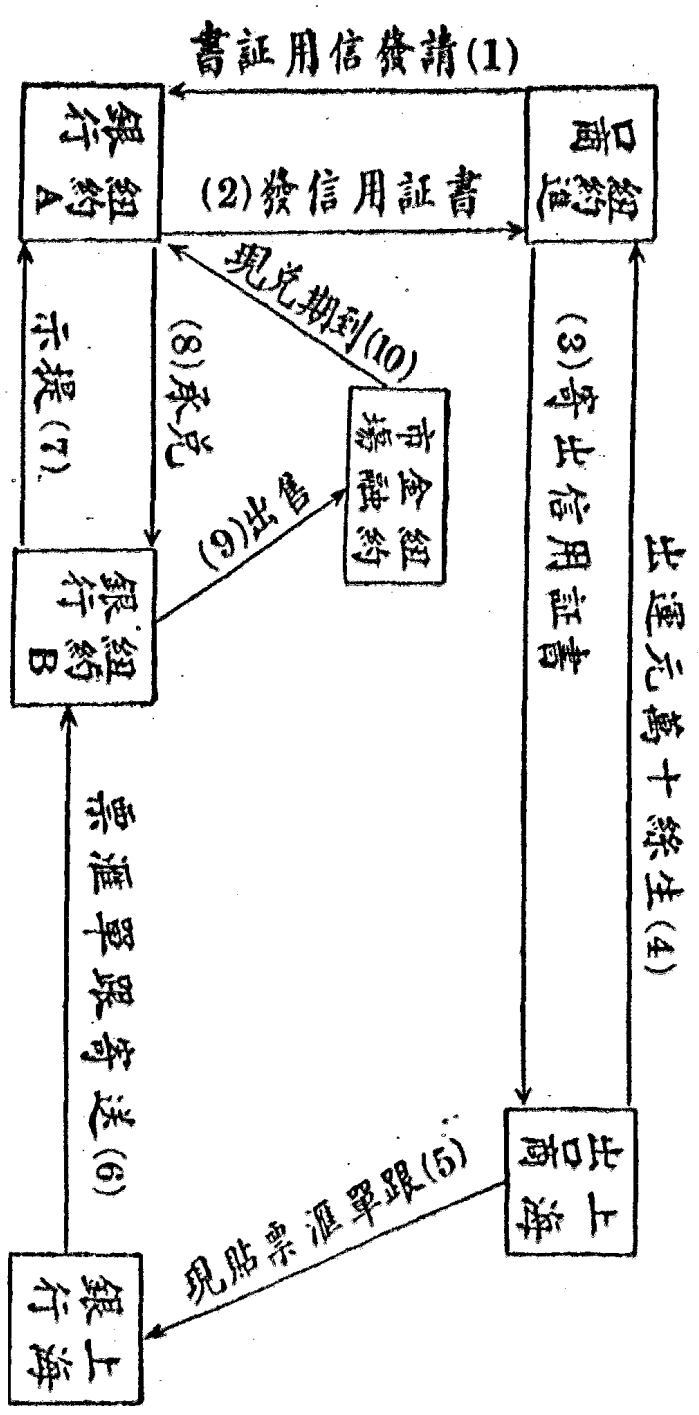 (1)請發信用証書
紐約進
口商
紐約A
銀行
(2)發信用証書
(10)到期兌現
(3)寄出信用証書
(4)生絲十萬元運出
(7)提示
(8)承兌
紐約
金融
市場
(9)出售
紐約B
銀行
(6)送寄跟單滙票
(5)跟單滙票貼現
上海
出口商
上海
銀行